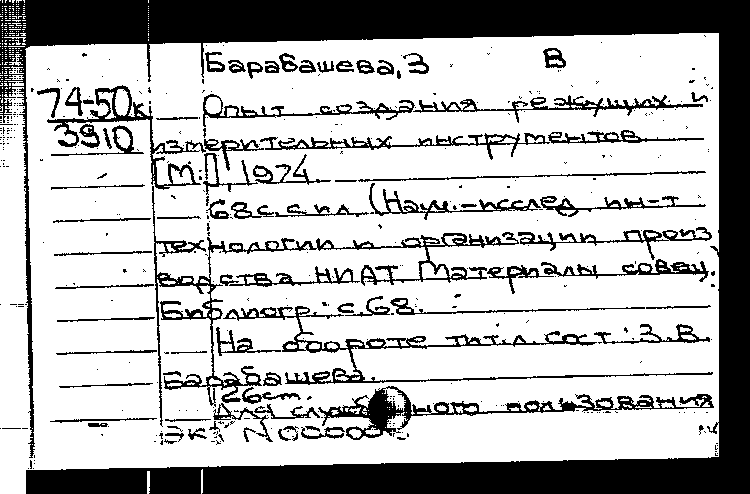 Барабашева, З В
74-50к Опыт создания режущих и
3910 измерительных инструментов
[М.], 1974.
68 с. с ил. (Науч.-исслед. ин-т
технологии и организации произ
водства НИАТ. Материалы совещ.)
Библиогр.: с. 68.
На обороте тит. л. сост.: З. В.
Барабашева.
26cm.
Для служебного пользования
экз N 00000